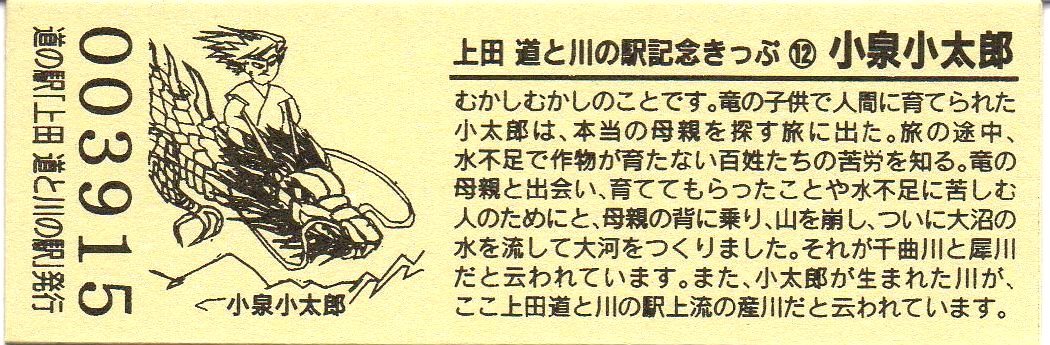 上田 道と川の駅記念きっぷ⑫ 小泉小太郎
むかしむかしのことです。竜の子供で人間に育てられた
小太郎は、本当の母親を探す旅に出た。旅の途中、
水不足で作物が育たない百姓たちの苦労を知る。竜の
母親と出会い、育ててもらったことや水不足に苦しむ
人のためにと、母親の背に乗り、山を崩し、ついに大沼の
水を流して大河をつくりました。それが千曲川と犀川
だと云われています。また、小太郎が生まれた川が、
ここ上田道と川の駅上流の産川だと云われています。
←小泉小太郎
003915
道の駅「上田 道と川の駅」発行